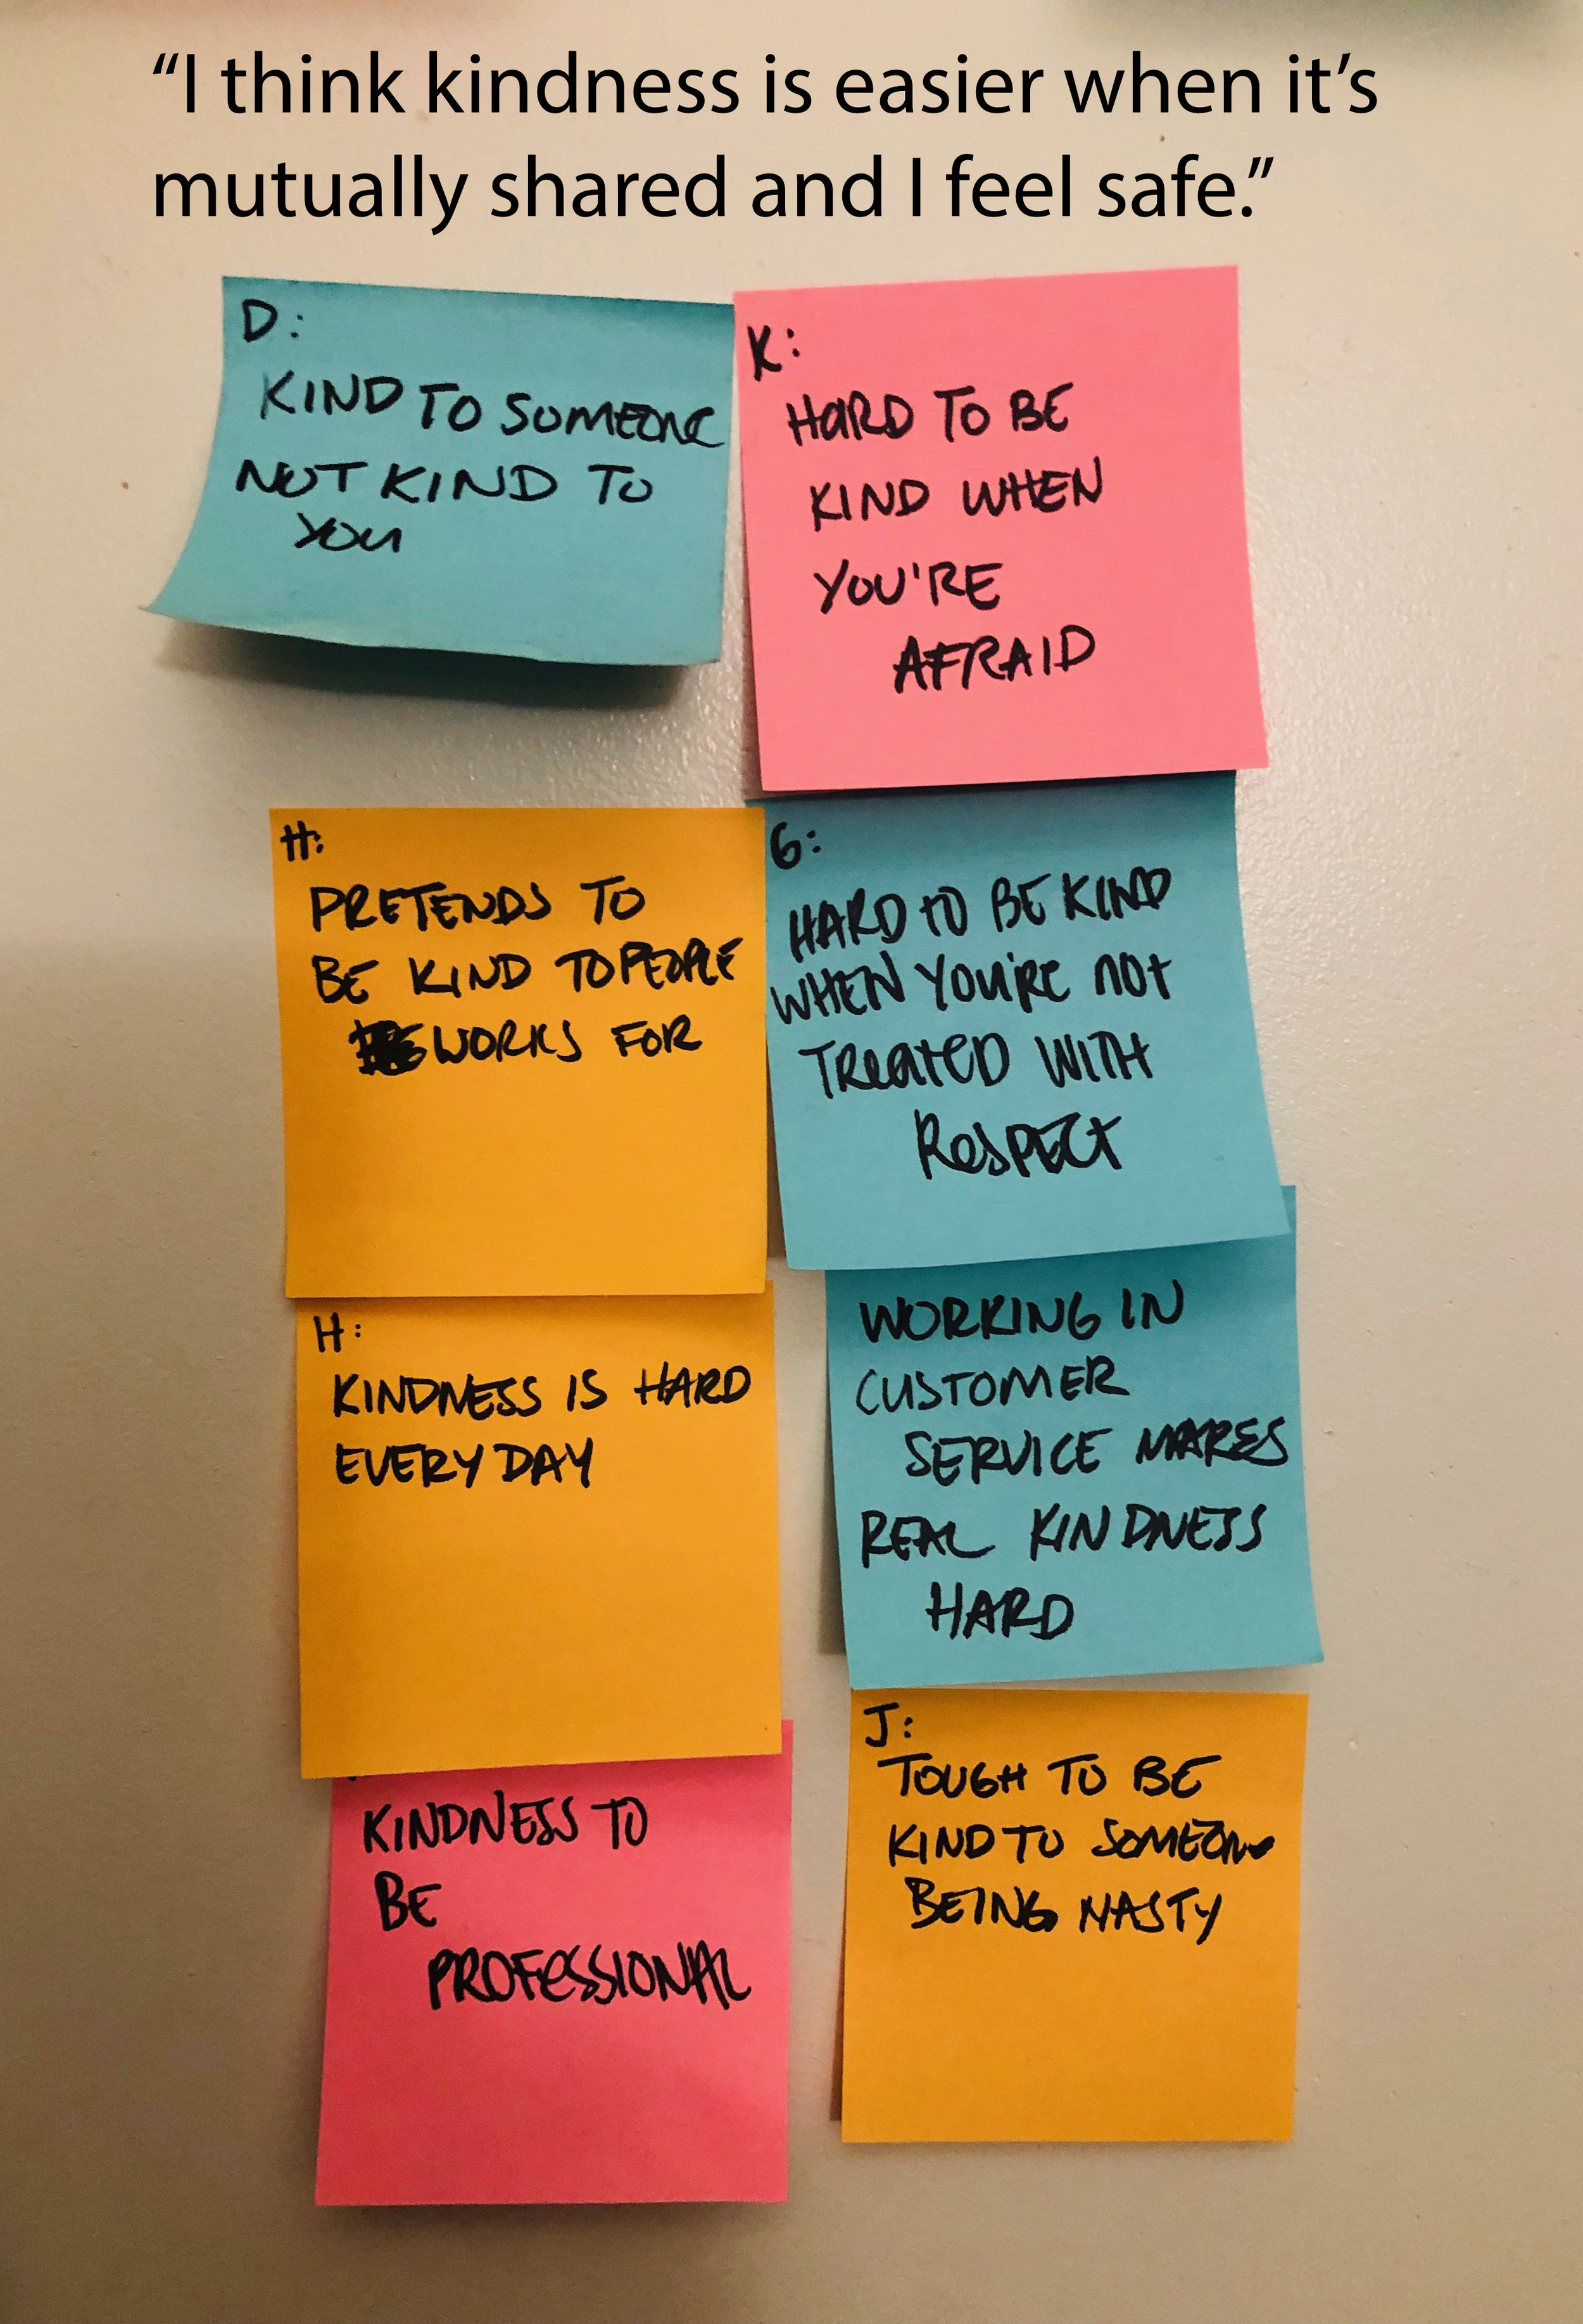 “I think kindness is easier when it’s
mutually shared and I feel safe.”
D:
KIND TO SOMEONE
NOT KIND TO
YOU
K:
HARD TO BE
KIND WHEN
YOU'RE
AFRAID
H:
PRETENDS TO
BE KIND TO PEOPLE
WORKS FOR
G:
HARD TO BE KIND
WHEN YOU'RE NOT
TREATED WITH
RESPECT
H:
KINDNESS IS HARD
EVERY DAY
WORKING IN
CUSTOMER
SERVICE MAKES
REAL KINDNESS
HARD
KINDNESS TO
BE
PROFESSIONAL
J:
TOUGH TO BE
KIND TO SOMEONE
BEING NASTY